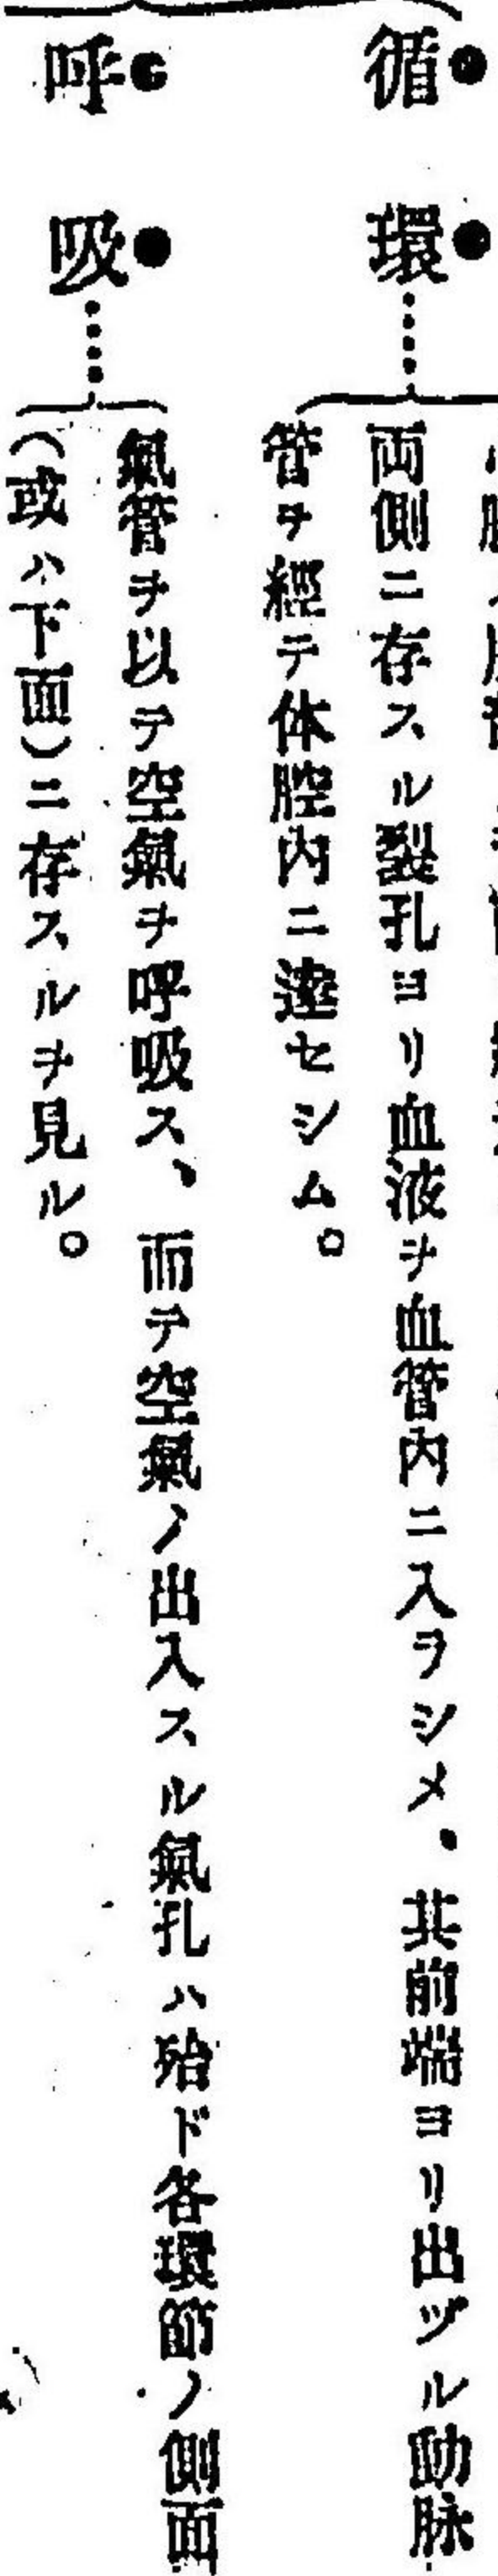 循環……
両側ニ存スル裂孔ヨリ血液ヲ血管内ニ入ラシメ、其前端ヨリ出ヅル動脉
管ヲ經テ体腔内ニ達セシム。
呼吸……
氣管ヲ以テ空氣ヲ呼吸ス、而テ空氣ノ出入スル氣孔ハ殆ド各環節ノ側面
(或ハ下面)ニ存スルヲ見ル。